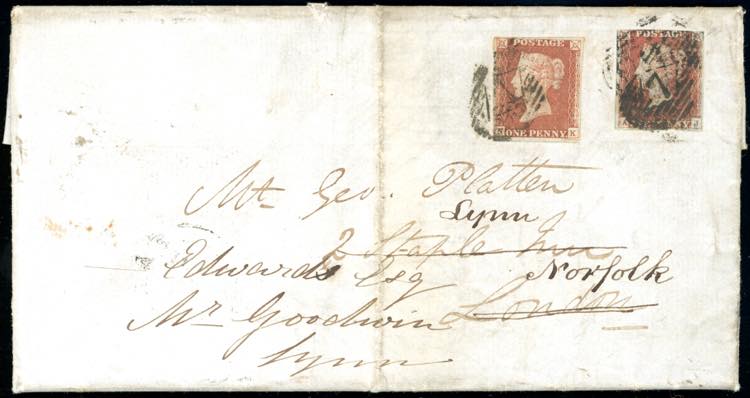 POSTAGE
ONE PENNY K
POSTAGE
Mr Geo. Platten
Lynn
2 Staple Inn
Edwards Esq Norfolk
Mr Goodwin London
Lynn